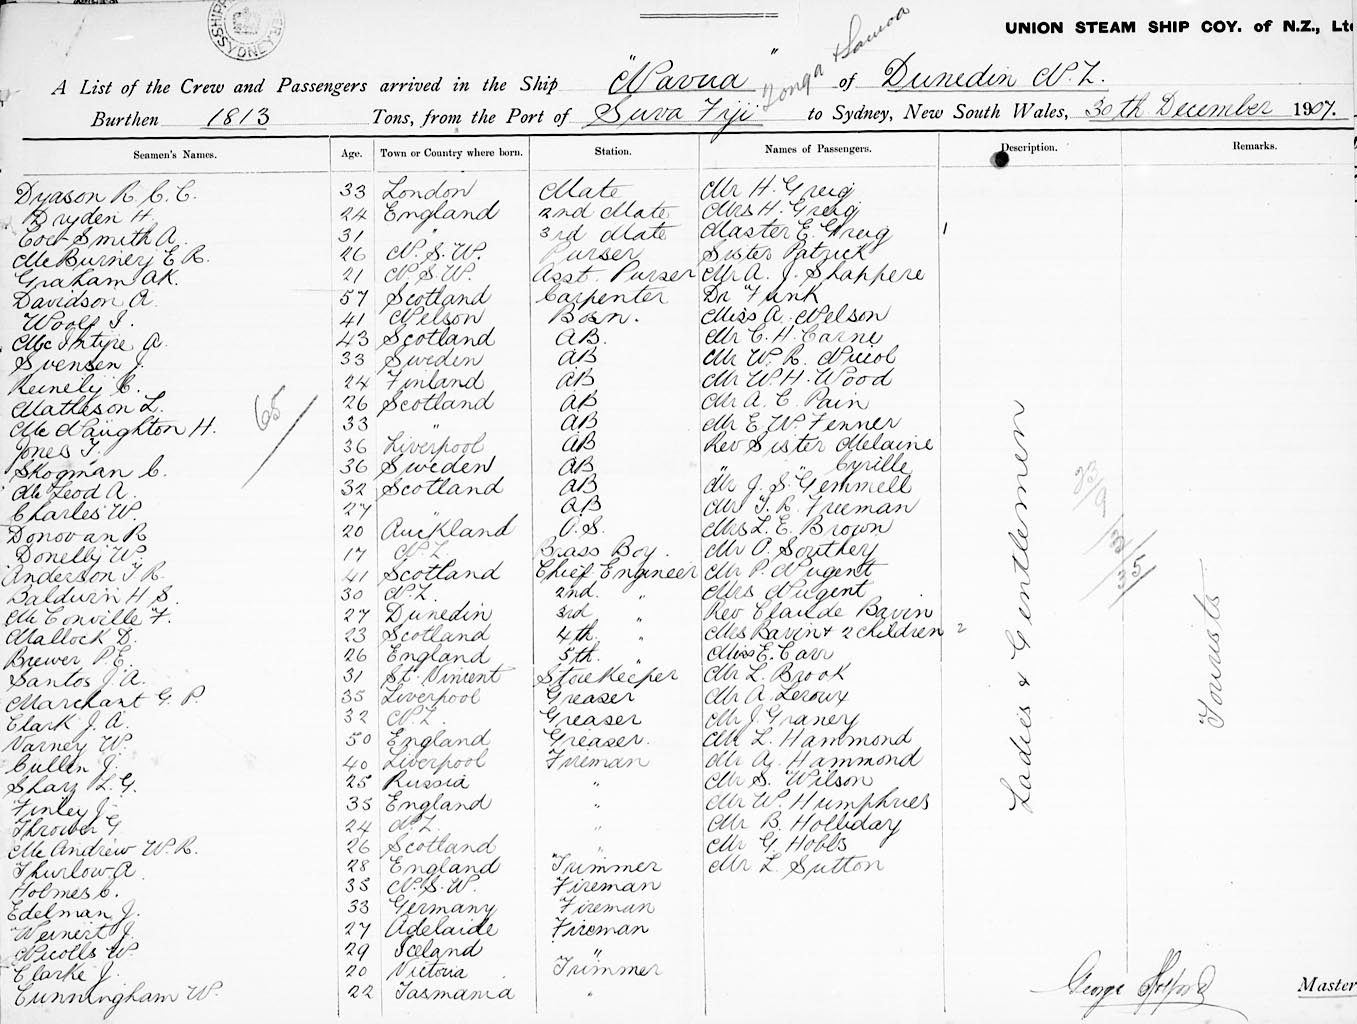 UNION STEAM SHIP COY. of N.Z., Ltd
Tonga & Samoa
A List of the Crew and Passengers arrived in the Ship "Navua" of Dunedin N.Z.
Burthen 1813 Tons, from the Port of Suva Fiji to Sydney, New South Wales, 30th December 1907.
Seamen's Names. Age. Town or Country where born. Station. Names of Passengers. Description. Remarks.
Dyason R. C. C. 33 London Mate Mr H. Greig
Dryden H. 24 England 2nd Mate Mrs H. Greig
Smith A. 31 " 3rd Mate Master E. Greig 1
McBurney E R. 26 N.S.W. Purser Sister Patrick
Graham AK. 21 N.S.W. Asst. Purser Mr A. J. Shappere
Davidson A. 57 Scotland Carpenter Dr Funk
Woolf I. 41 Nelson Bosn. Miss A. Nelson
McIntyre A. 43 Scotland AB. Mr C. H. Carne
Svensen J. 33 Sweden AB Mr W. R. Nicol
C. 24 Finland AB Mr W. H. Wood
Matheson L. 26 Scotland AB Mr A. C. Pain
McNaughton H. 33 " AB Mr E. W. Fenner
Jones T. 36 Liverpool AB Rev Sister Melaine
Skogman C. 36 Sweden AB " " Cyrille
McLeod A. 32 Scotland AB Mr J. S. Gemmell
Charles W. 27 " AB Mr T. R. Freeman
Donovan R 20 Auckland O.S. Mrs L. E. Brown
Donelly W. 17 N.Z. Brass Boy. Mr O. Southey
Anderson T R. 41 Scotland Chief Engineer Mr P. Nugent
Baldwin H S. 30 N.Z. 2nd. " Mrs Nugent
McConville F. 27 Dunedin 3rd " Rev Claude Bavin
Mallock D. 23 Scotland 4th " Mrs Bavin & 2 children 2
Brewer P. E. 26 England 5th. " Miss E. Carr
Santos J. A. 31 St. Vincent Storekeeper Mr L. Brook
Marchant G. P. 35 Liverpool Greaser Mr A. Leroux
Clark J. A. 32 N.Z. Greaser Mr J. Graney
Varney W. 50 England Greaser. Mr L. Hammond
Cullen J. 40 Liverpool Fireman Mr A. Hammond
Sharz L. G. 25 Russia " Mr S. Wilson
Finley J. 35 England " Mr W. Humphries
Thrower G 24 N.Z. " Mr B. Holliday
McAndrew W. R. 26 Scotland " Mr G. Hobbs
Thurlow A. 28 England Trimmer Mr L. Sutton
Holmes C. 35 N.S.W. Fireman
Edelman J. 33 Germany Fireman
Weinert J. 27 Adelaide Fireman
Nicolls W. 29 Iceland "
Clarke J. 20 Victoria Trimmer
Cunningham W. 22 Tasmania "
65
Ladies & Gentlemen
23
9
32
35
Tourists
George Master